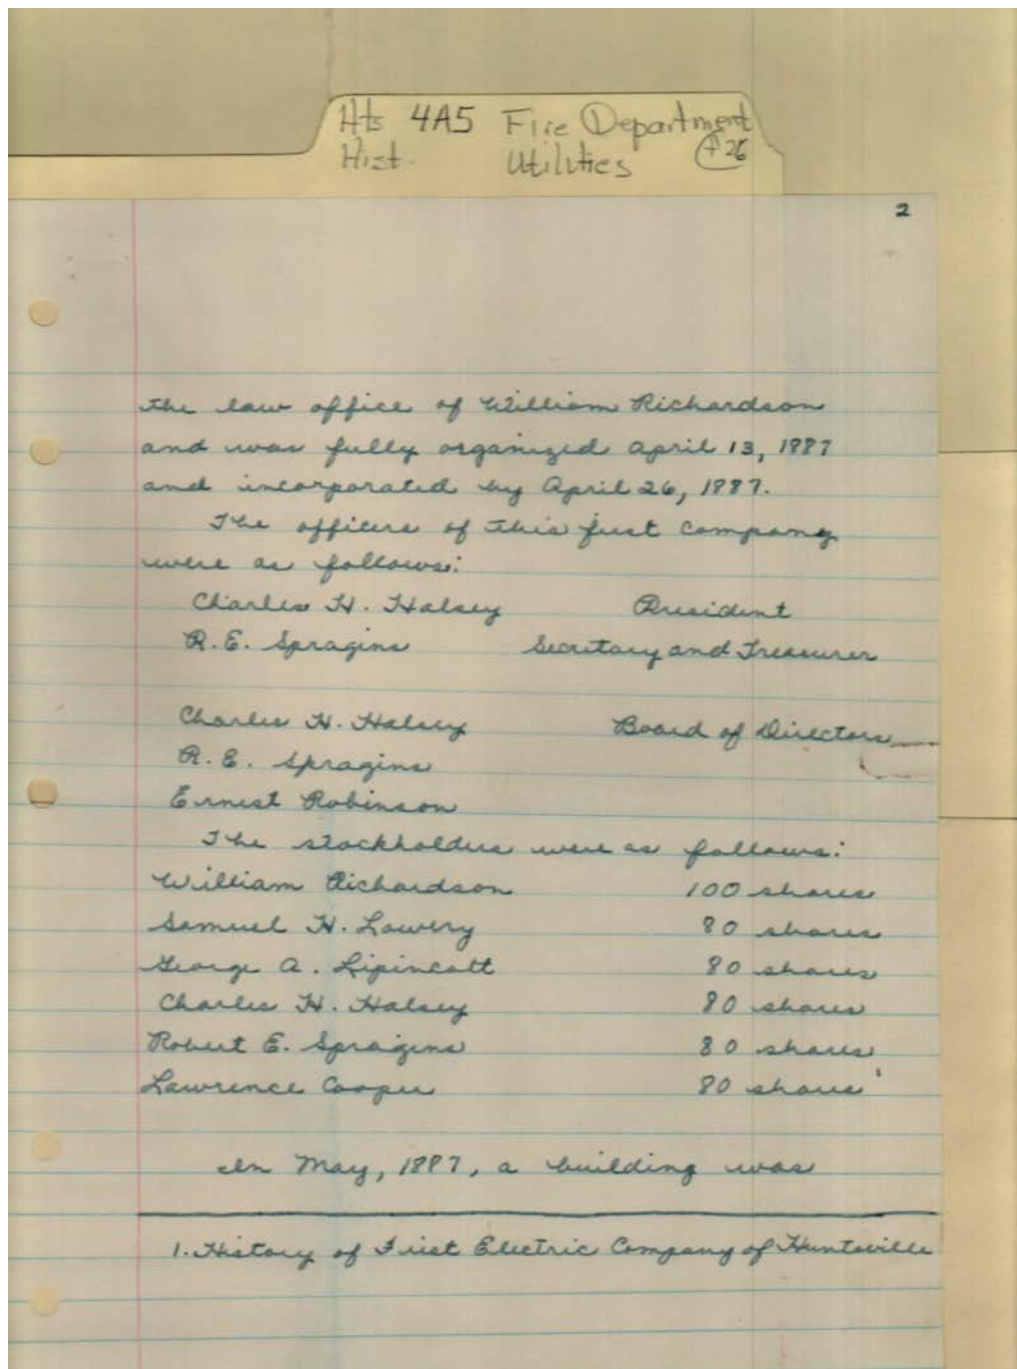 Hts 4A5 Fire Department
Hist. Utilities F26
2
the law office of William Richardson
and was fully organized April 13, 1887
and incorporated by April 26, 1887.
The officers of this first Company
were as follows:
Charles H. Halsey President
R.E. Spragins Secretary and Treasurer
Charles H. Halsey Board of Directors
R. E. Spragins
Ernest Robinson
The stockholders were as follows:
William Richardson 100 shares
Samuel H. Lowery 80 shares
George A. Lipincott 80 shares
Charles H. Halsey 80 shares
Robert E. Spragins 80 shares
Lawrence Cooper 80 shares
In May, 1887, a building was
1. History of First Electric Company of Huntsville